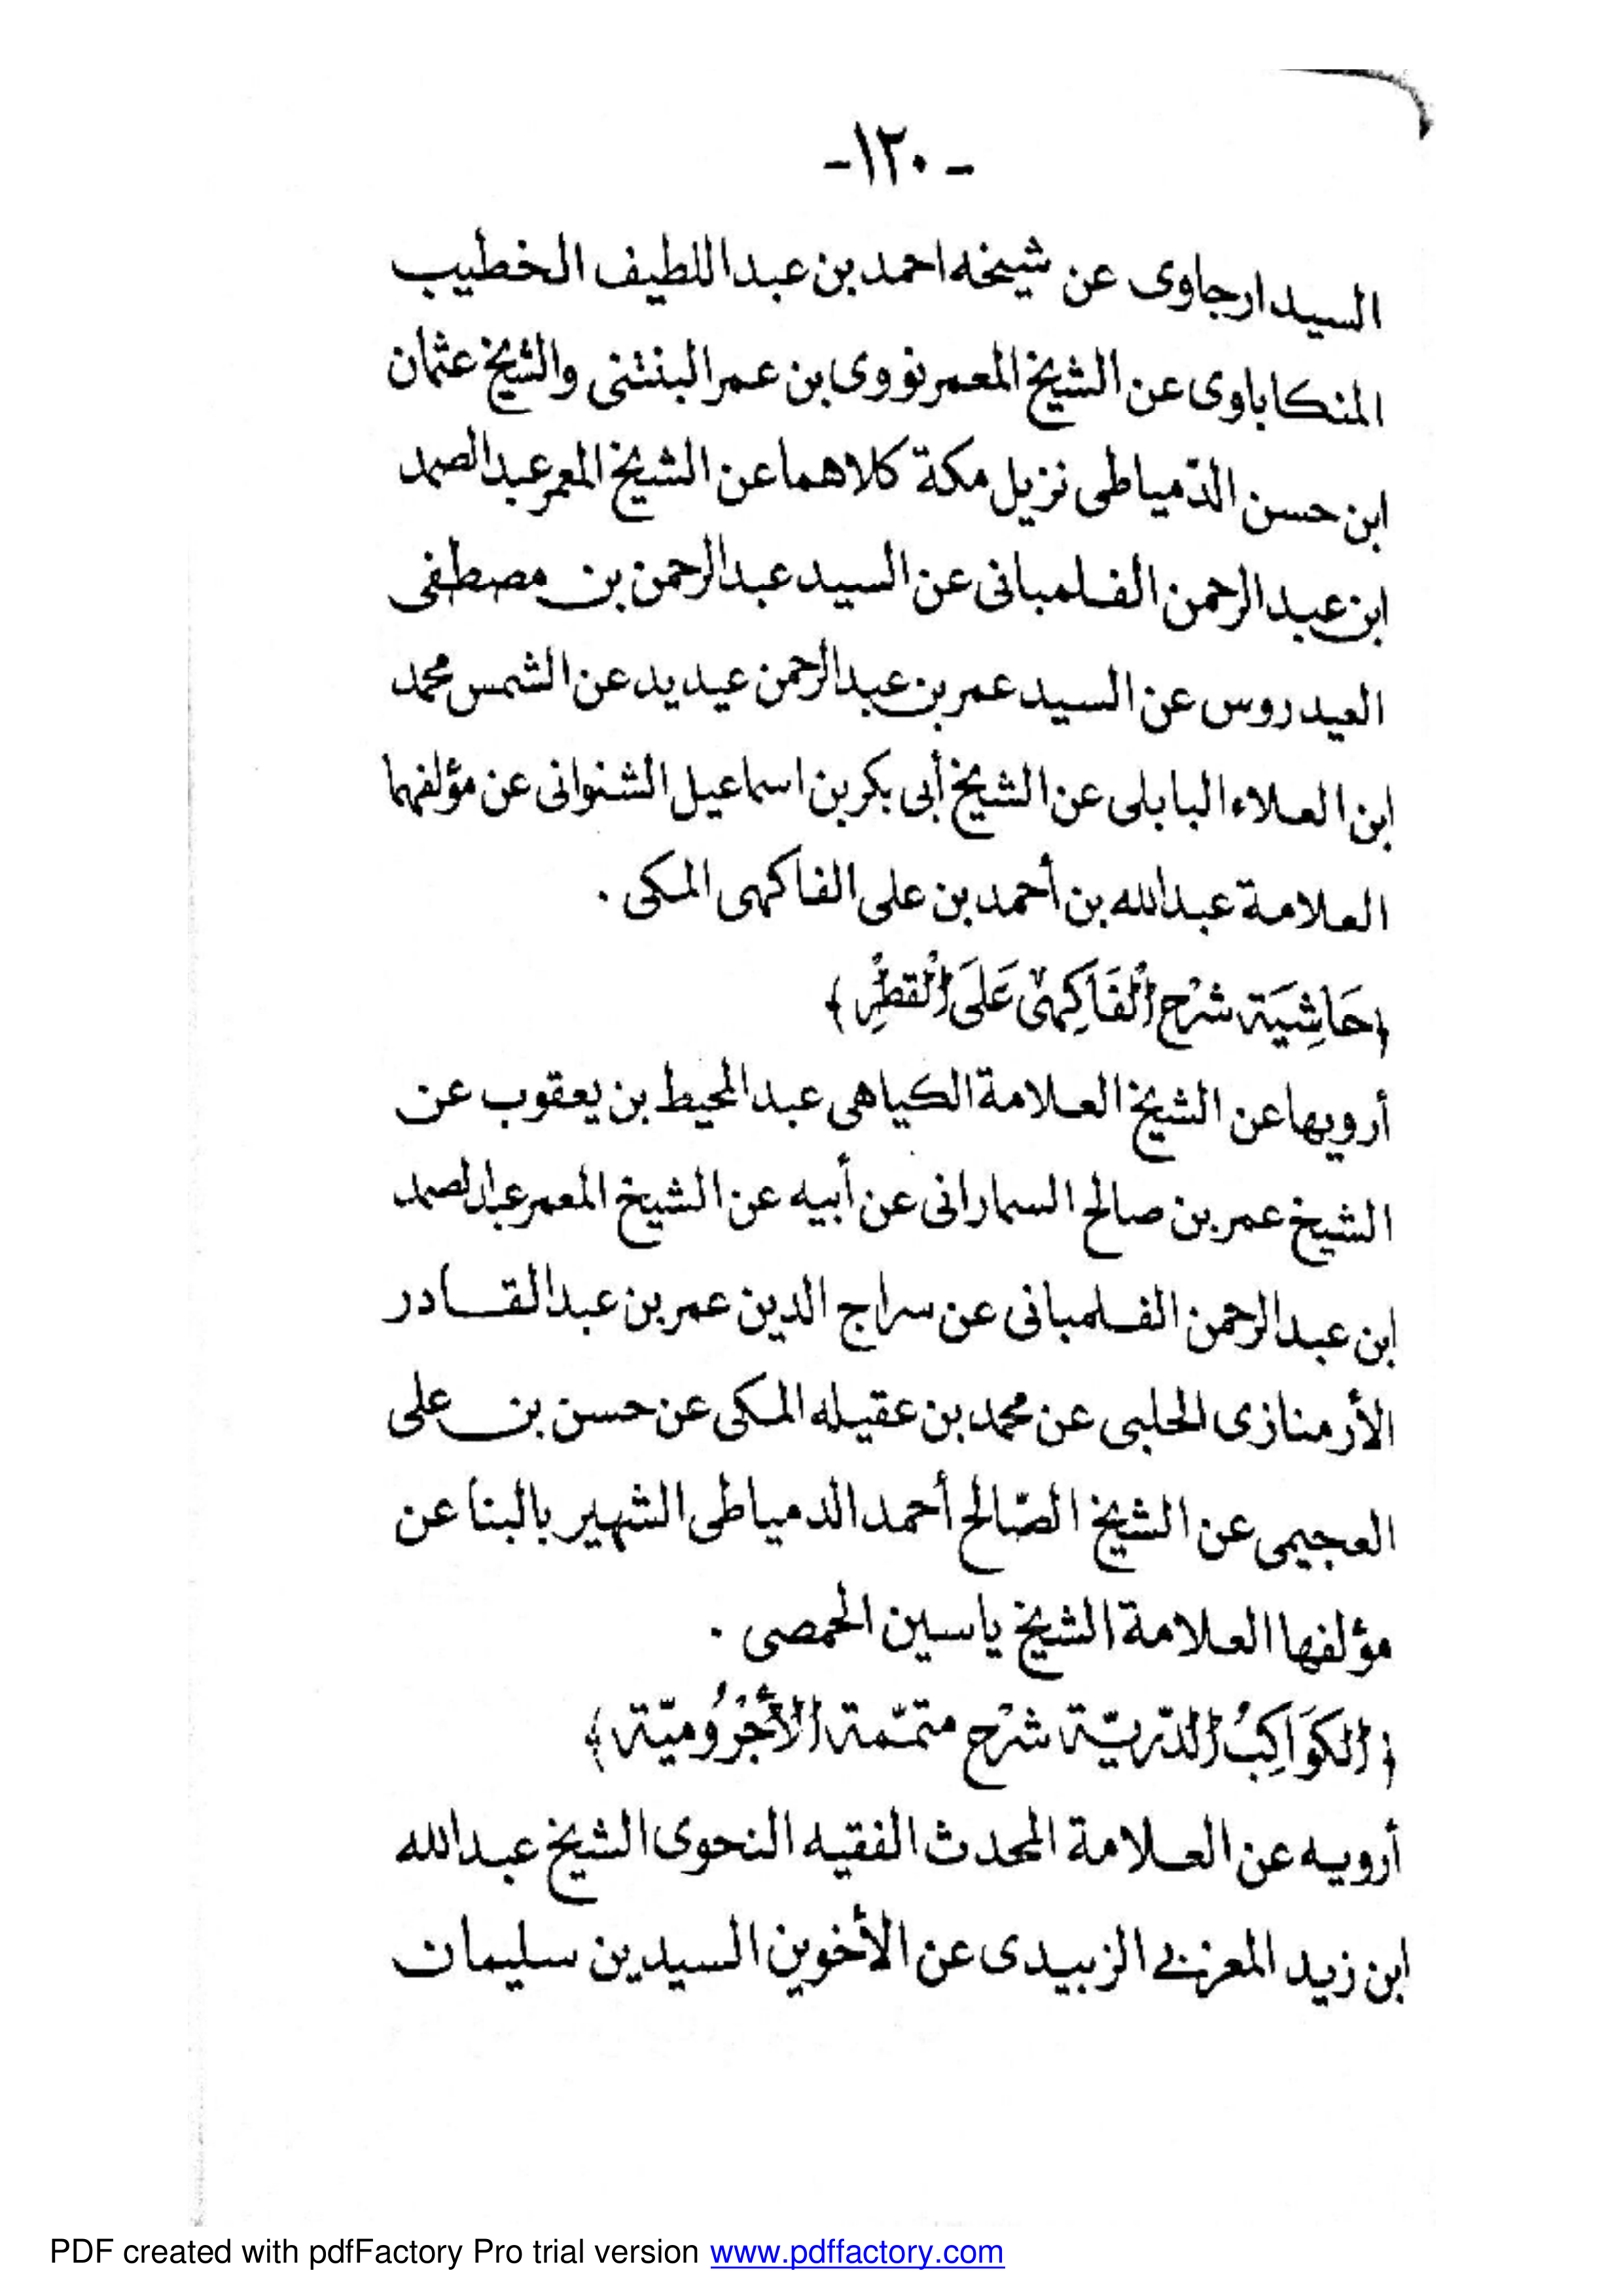 -١٢٠-
السيدارجاوى عن شيخه احمد بن عبد اللطيف الخطيب
المنكاباوى عن الشيخ المعمر نووى بن عمر البنتنى والشيخ عثمان
ابن حسن الدّمياطى نزيل مكة كلاهما عن الشيخ المعمر عبد الصمد
ابن عبد الرحمن الفلمبانى عن السيد عبد الرحمن بن مصطفى
العيدروس عن السيد عمر بن عبد الرحمن عيديد عن الشمس محمد
ابن العلاء البابلى عن الشيخ أبى بكر بن اسماعيل الشنوانى عن مؤلفهما
العلامة عبد الله بن أحمد بن على الفاكهى المكى .
﴿حَاشِيَة شرْح الْفَاكِهىْ عَلَى الْقَطْرِ﴾
أرويها عن الشيخ العلامة الكياهى عبد المحيط بن يعقوب عن
الشيخ عمر بن صالح السمارانى عن أبيه عن الشيخ المعمر عبد الصمد
ابن عبد الرحمن الفلمبانى عن سراج الدين عمر بن عبد القادر
الأرمنازى الحلبى عن محمد بن عقيله المكى عن حسن بن على
العجيمى عن الشيخ الصّالح أحمد الدمياطى الشهير بالبنا عن
مؤلفها العلامة الشيخ ياسين الحمصى .
﴿الكوَاكِبُ الدّريّة شرْح متمّمة الأجْرُوميّة﴾
أرويه عن العلامة المحدث الفقيه النحوى الشيخ عبد الله
ابن زيد المعزبي الزبيدى عن الأخوين السيدين سليمان
PDF created with pdfFactory Pro trial version www.pdffactory.com